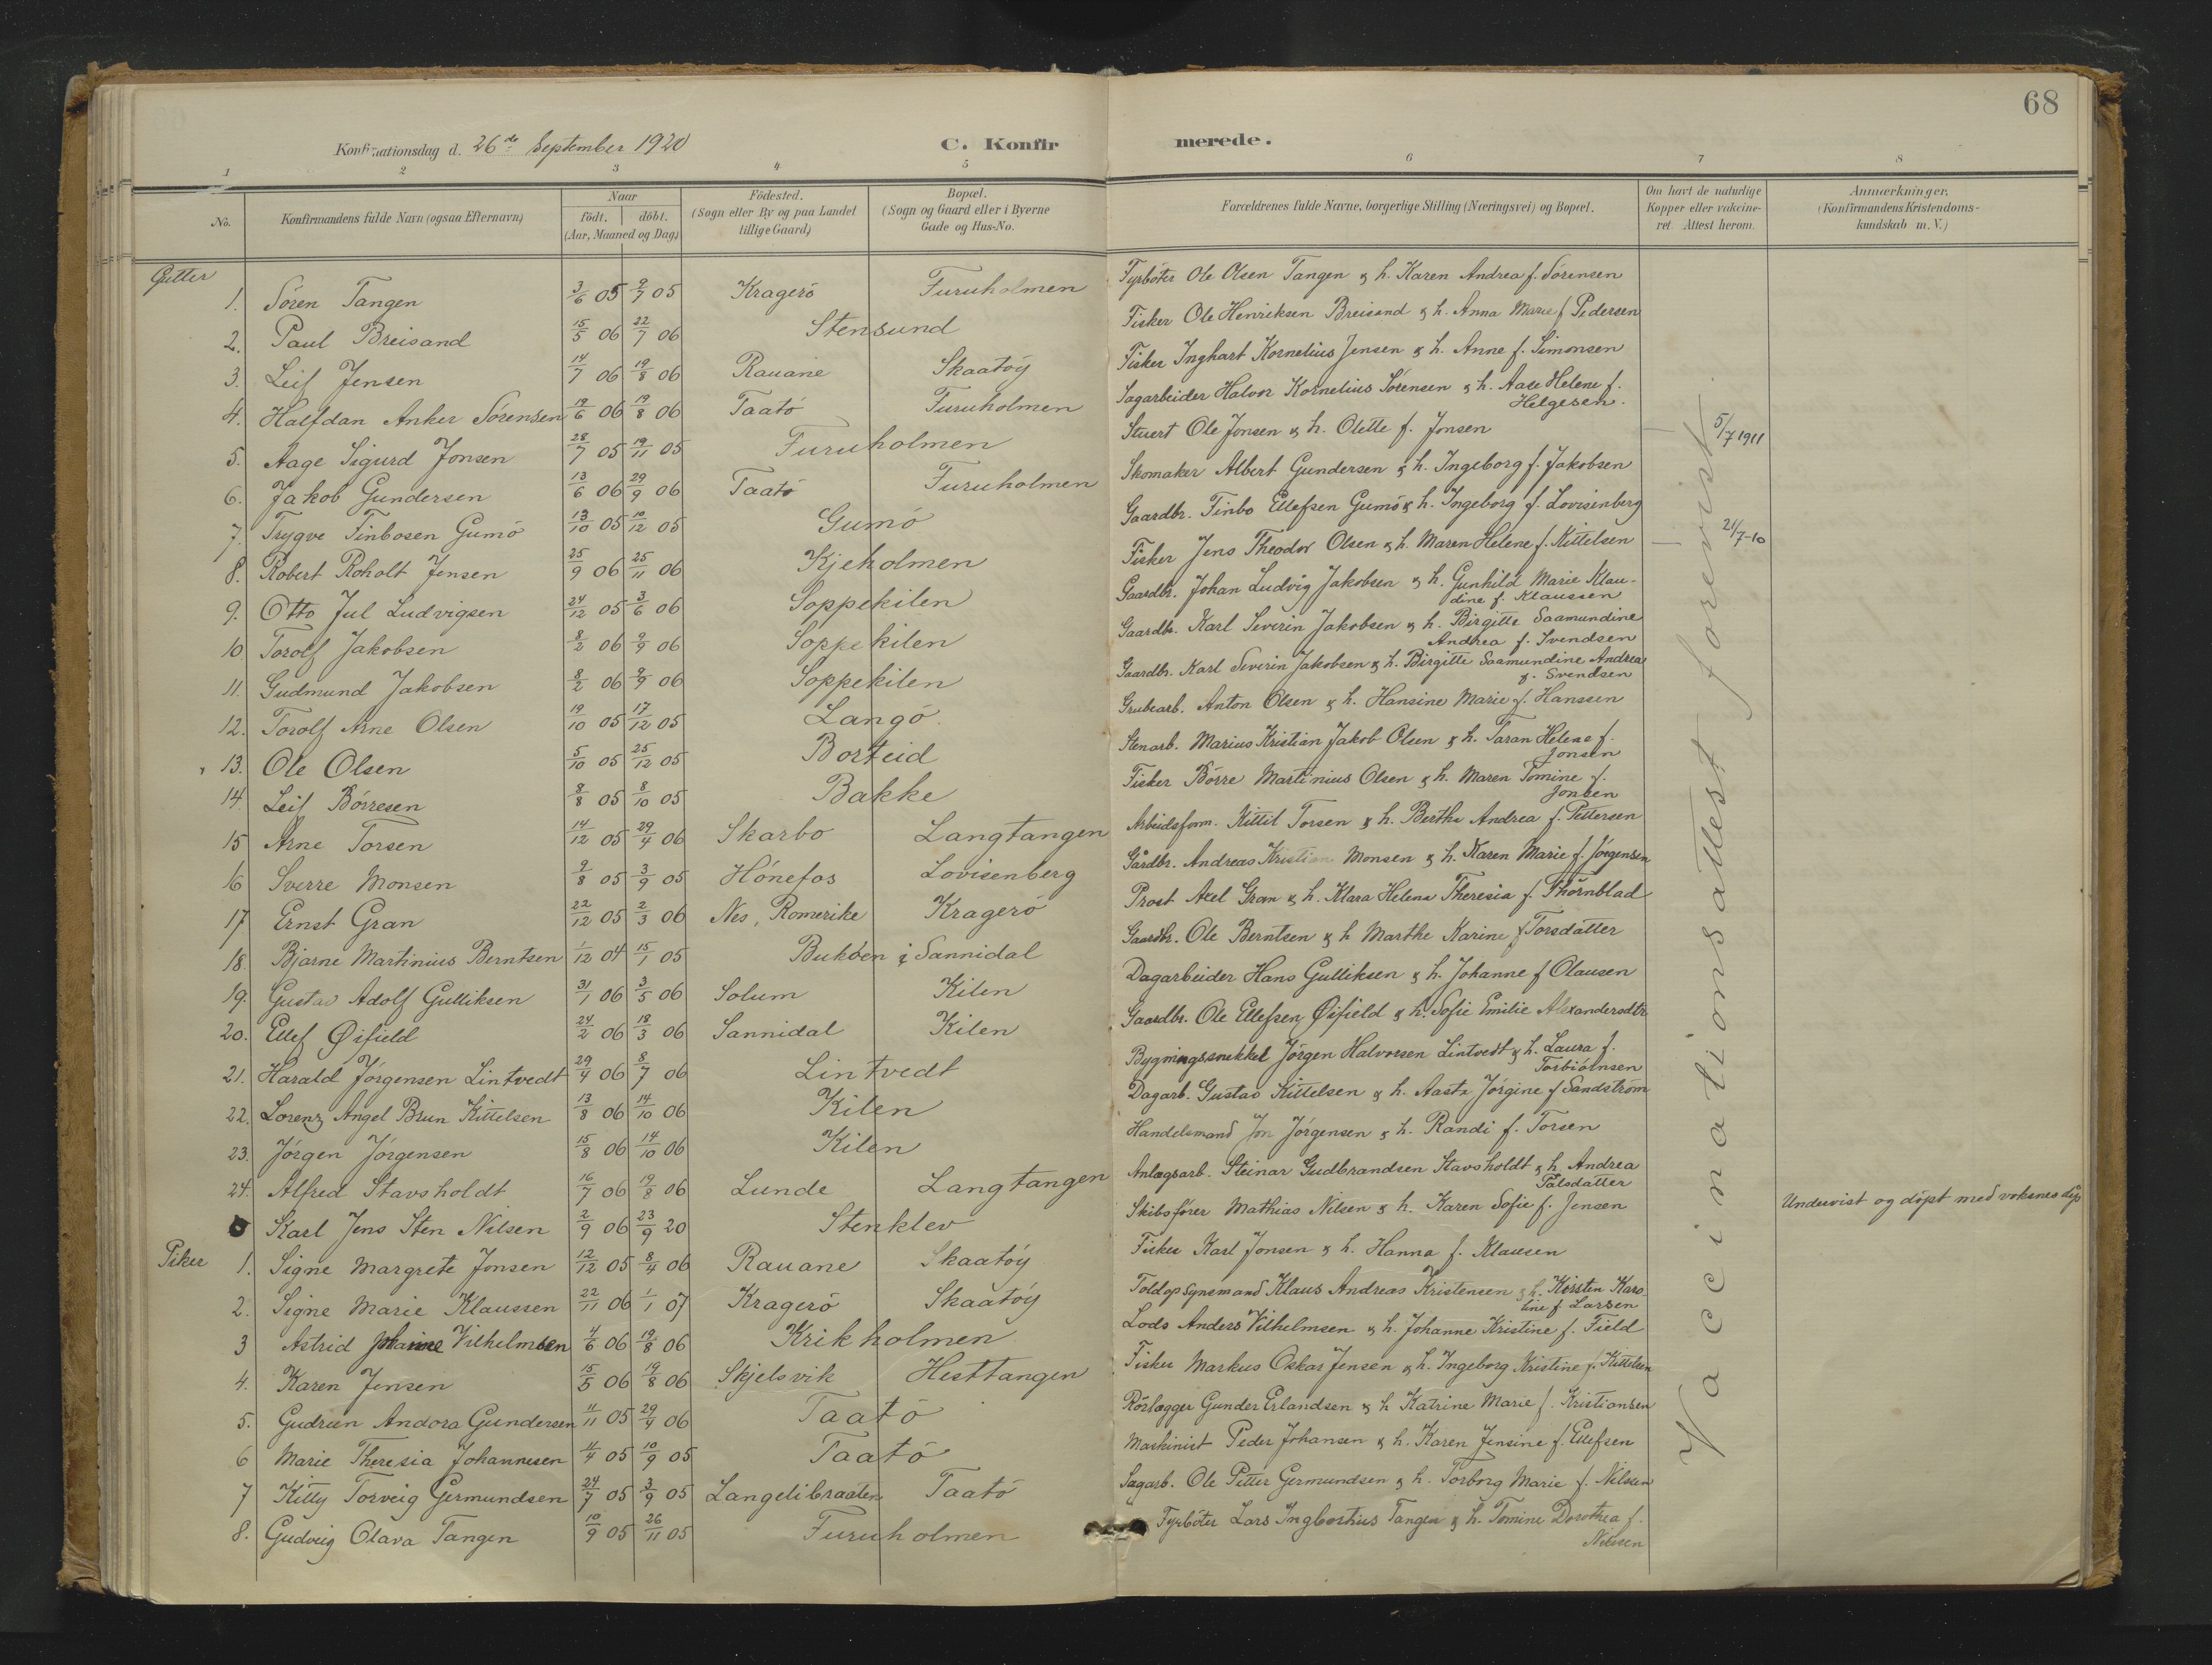 68
Konfirmationsdag d. 26de September 1920
C. Konfirmerede.
1 2 3 4 5 6 7 8
No.
Konfirmandens fulde Navn (ogsaa Efternavn)
Naar
födt. döbt.
(Aar, Maaned og Dag)
Födested.
(Sogn eller By og paa Landet
tillige Gaard)
Bopæl.
(Sogn og Gaard eller i Byerne
Gade og Hus-No.
Forældrenes fulde Navne, borgerlige Stilling (Næringsvei) og Bopæl.
Om havt de naturlige
Kopper eller vakcine-
ret. Attest herom.
Anmærkninger.
(Konfirmandens Kristendoms-
kundskab m. V.)
Gutter
1. Sören Tangen 3/6 05 9/7 05 Kragerö Furuholmen Fyrböter Ole Olsen Tangen & h. Karen Andrea f. Sörensen
2. Paul Breisand 15/5 06 22/7 06 Stensund Fisker Ole Henriksen Breisand & h. Anna Marie f Pedersen
3. Leif Jensen 14/7 06 19/8 06 Rauane Skaatöy Fisker Inghart Kornelius Jensen & h. Anne f. Simonsen
4. Halfdan Anker Sörensen 19/6 06 19/8 06 Taatö Furuholmen Sagarbeider Halvor Kornelius Sörensen & h. Aase Helene f.
Helgesen.
5. Aage Sigurd Jonsen 28/7 05 19/11 05 Furuholmen Stuert Ole Jonsen & h. Olette f. Jonsen — 5/7 1911
6. Jakob Gundersen 13/6 06 29/9 06 Taatö Furuholmen Skomaker Albert Gundersen & h. Ingeborg f. Jakobsen
7. Trygve Finbosen Gumö 13/10 05 10/12 05 Gumö Gaardbr. Finbo Ellefsen Gumö & h. Ingeborg f. Lovisenberg
8. Robert Roholt Jensen 25/9 06 25/11 06 Kjeholmen Fisker Jens Theodor Olsen & h. Maren Helene f. Kittelsen — 21/7-10
9. Otto Jul Ludvigsen 24/12 05 3/6 06 Soppekilen Gaardbr. Johan Ludvig Jakobsen & h. Gunhild Marie Klau-
dine f. Klaussen
10. Torolf Jakobsen 8/2 06 9/9 06 Soppekilen Gaardbr. Karl Severin Jakobsen & h. Birgitte Saamundine
Andrea f. Svendsen
11. Gudmund Jakobsen 8/2 06 9/9 06 Soppekilen Gaardbr. Karl Severin Jakobsen & h. Birgitte Saamundine Andrea
f. Svendsen
12. Torolf Arne Olsen 19/10 05 17/12 05 Langö. Grubearb. Anton Olsen & h. Hansine Marie f. Hanssen
13. Ole Olsen 5/10 05 25/12 05 Borteid Stenarb. Marius Kristian Jakob Olsen & h. Taran Helene f.
Jonsen
14. Leif Börresen 8/8 05 8/10 05 Bakke Fisker Börre Martinius Olsen & h. Maren Tomine f.
Jonsen
15 Arne Torsen 14/12 05 29/4 06 Skarbo Langtangen Arbeidsform. Kittil Torsen & h. Berthe Andrea f. Pettersen
16 Sverre Monsen 9/8 05 3/9 05 Hönefos Lovisenberg Gårdbr. Andreas Kristian Monsen & h. Karen Marie f. Jörgensen
17 Ernst Gran 22/12 05 2/3 06 Nes, Romerike Kragerö Prost Axel Gran & h. Klara Helena Theresia f. Thörnblad
18. Bjarne Martinius Berntsen 1/12 04 15/1 05 Buköen i Sannidal Gaardbr. Ole Berntsen & h Marthe Karine f Torsdatter
19. Gustav Adolf Gulliksen 31/1 06 3/5 06 Solum Kilen Dagarbeider Hans Gulliksen & h. Johanne f Olausen
20. Ellef Øifield 24/2 06 18/3 06 Sannidal Kilen Gaardbr. Ole Ellefsen Øifield & h. Sofie Emilie Alexandersdtr.
21. Harald Jörgensen Lintvedt 29/4 06 8/7 06 Lintvedt Bygningssnekker Jörgen Halvorsen Lintvedt & h. Laura f.
Torbiörnsen
22. Lorenz Angel Brun Kittelsen 13/8 06 14/10 06 Kilen Dagarb. Gustav Kittelsen & h. Aasta Jörgine f Sandström
23. Jörgen Jörgensen 15/8 06 14/10 06 Kilen Handelsmand Jon Jörgensen & h. Randi f. Torsen
24. Alfred Stavsholdt 16/7 06 19/8 06 Lunde Langtangen Anlægsarb. Steinar Gudbrandsen Stavsholdt & h. Andrea
Pålsdatter
Karl Jens Sten Nilsen 2/9 06 23/9 20 Stenklev Skibsfører Mathias Nilsen & h. Karen Sofie f. Jensen Undervist og döpt med voksnes dåp
Piker
1. Signe Margrete Jonsen 12/12 05 8/4 06 Rauane Skaatöy Fisker Karl Jonsen & h. Hanna f. Klausen
2. Signe Marie Klaussen 22/11 06 1/1 07 Kragerö Skaatöy Toldopsynsmand Klaus Andreas Kristensen & h. Kirsten Karo
line f. Larsen
3 Astrid Johanne Vilhelmsen 4/6 06 19/8 06 Krikholmen Lods Anders Vilhelmsen & h. Johanne Kristine f. Field
4. Karen Jensen 15/5 06 19/8 06 Skjelsvik Hesttangen Fisker Markus Oskar Jensen & h. Ingeborg Kristine f. Kittelsen
5. Gudrun Andora Gundersen 11/11 05 29/4 06 Taatö Rörlægger Gunder Erlandsen & h Katrine Marie f. Kristiansen
6 Marie Theresia Johannesen 4/4 05 10/9 05 Taatö Maskinist Peder Johansen & h. Karen Jensine f. Ellefsen
7 Kitty Torveig Germundsen 24/7 05 3/9 05 Langelibraaten Taatö Sagarb. Ole Petter Germundsen & h. Torborg Marie f. Nilsen
8. Gudveig Olava Tangen 10/9 05 26/11 05 Furuholmen Fyrböter Lars Ingbortius Tangen & h. Tomine Dorothea f.
Nilssen
Vaccinationsattest forevist.